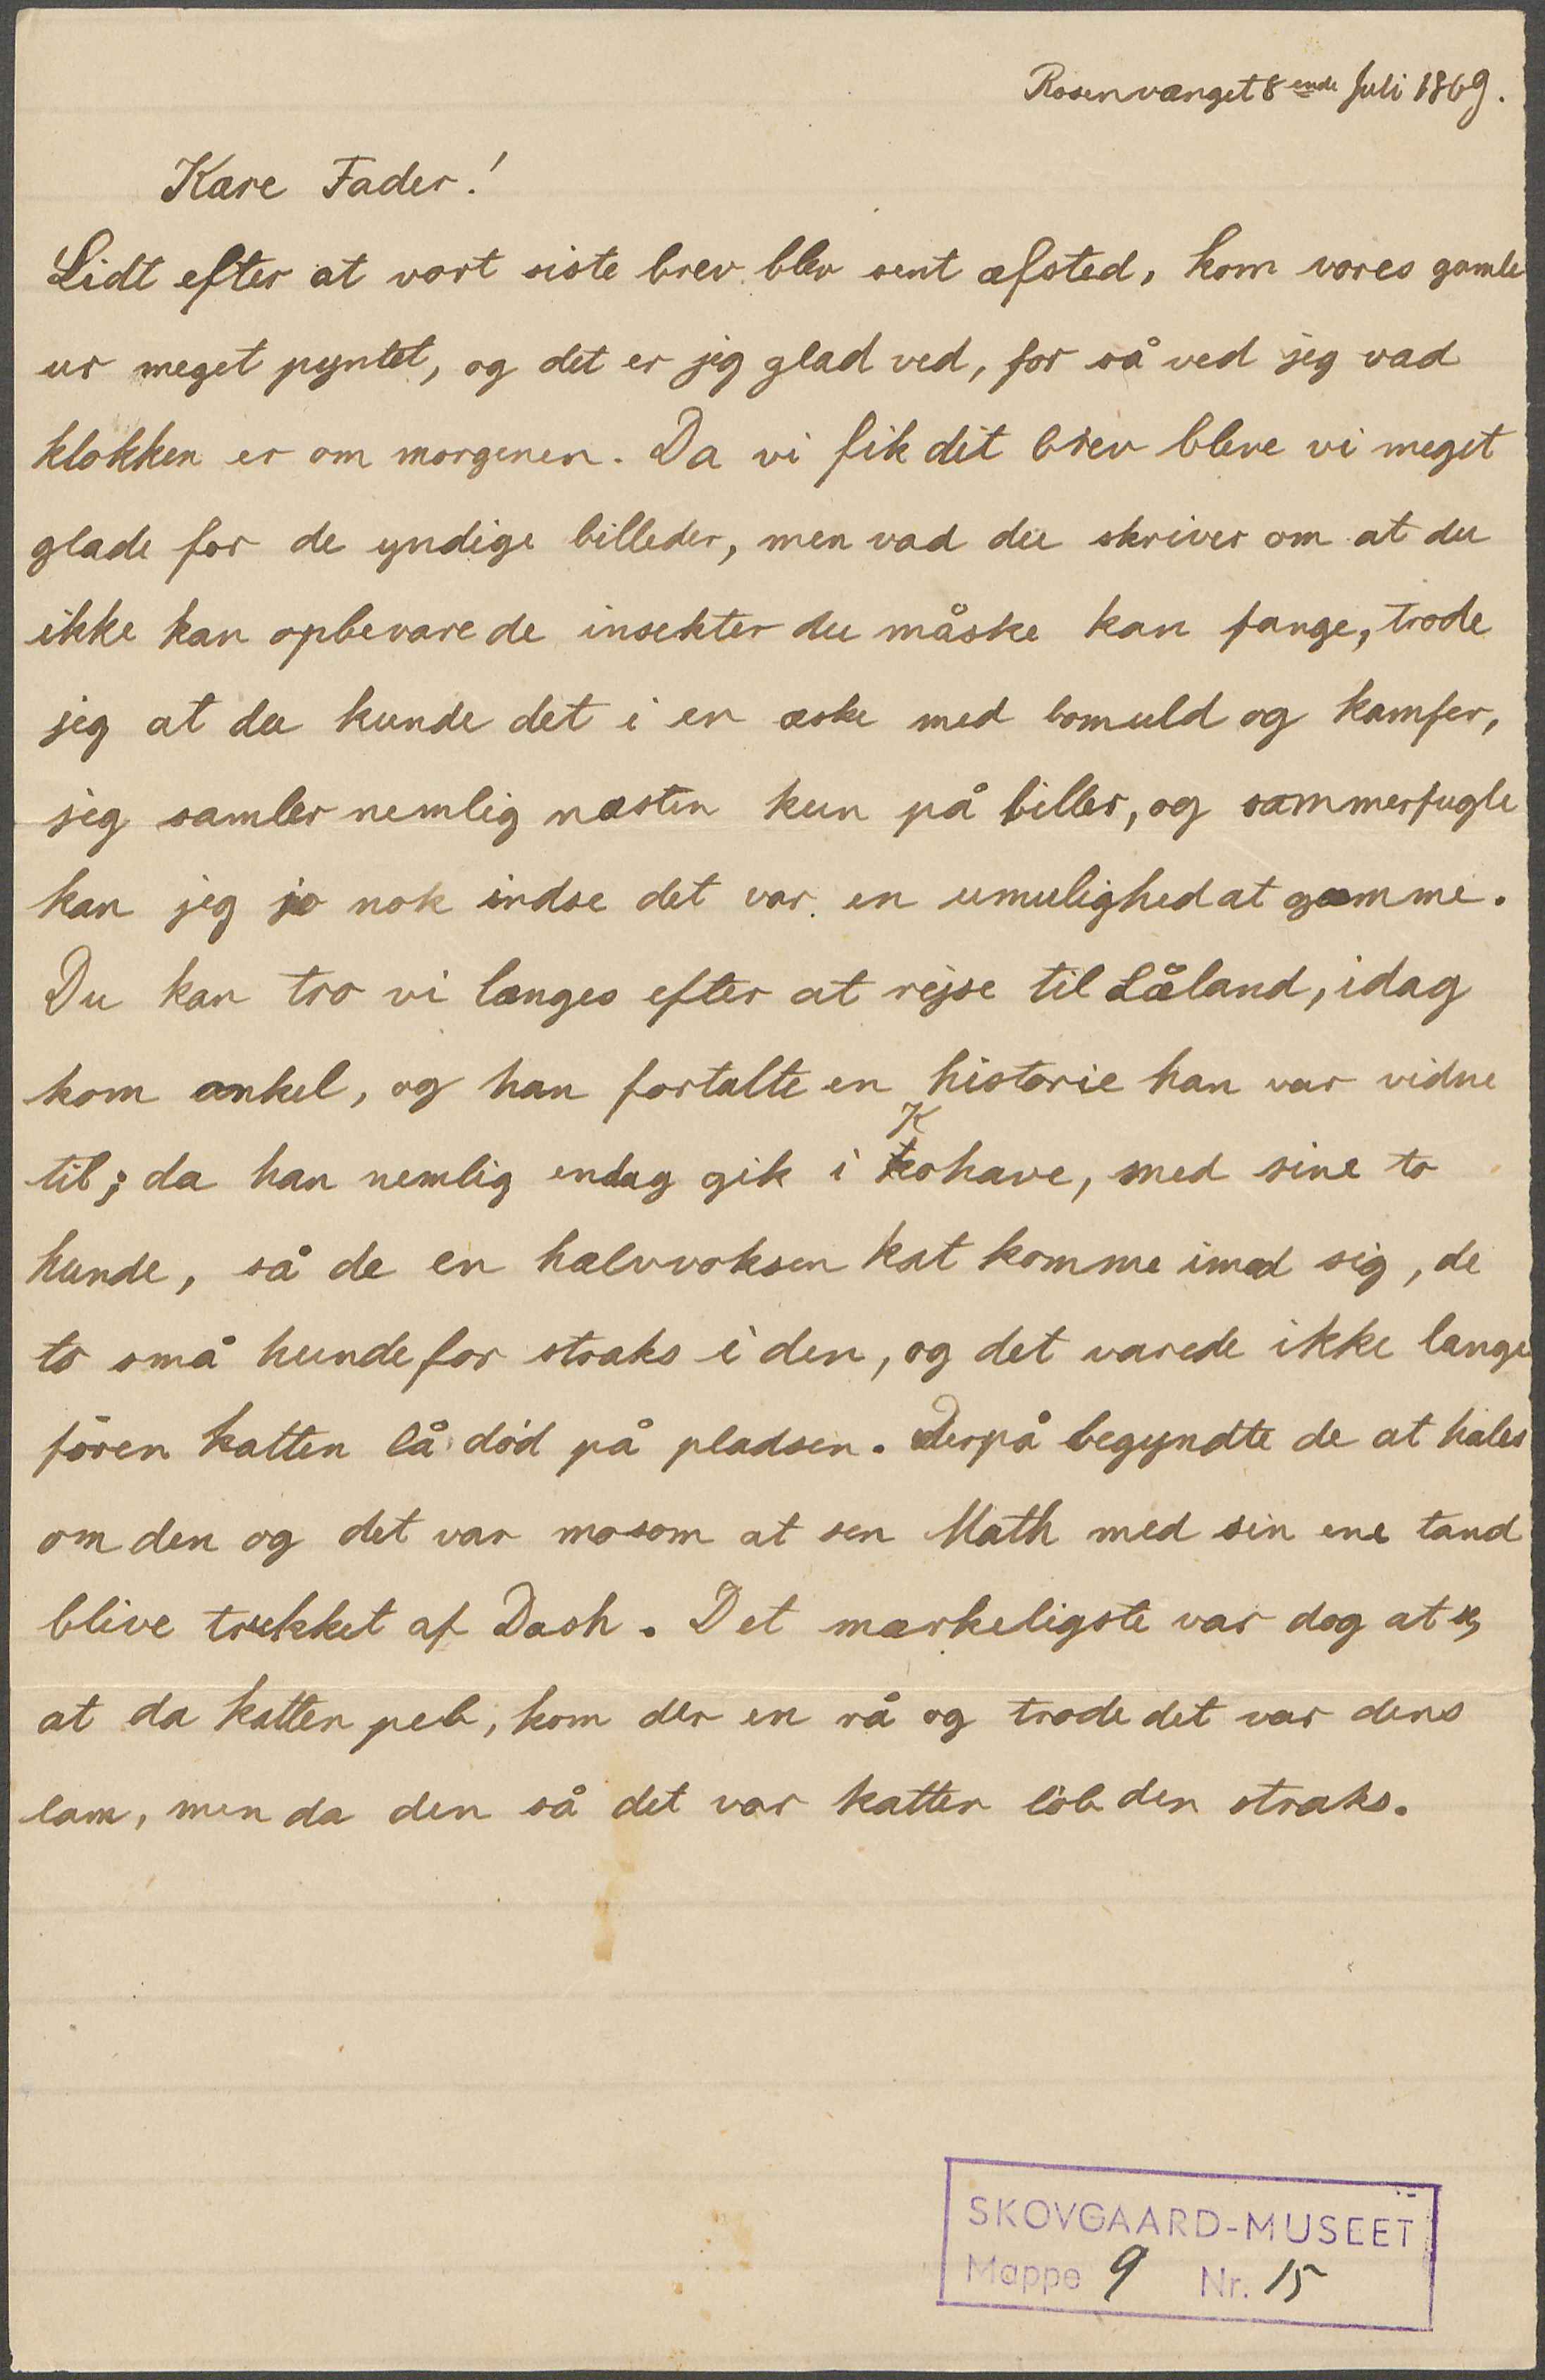 Rosenvænget 8ende Juli 1869.
Kære Fader!
Lidt efter at vort siste brev blev sent afsted, kom vores gamle
ur meget pyntet, og det er jeg glad ved, for så ved jeg vad
klokken er om morgenen. Da vi fik dit brev bleve vi meget
glade for de yndige billeder, men vad du skriver om at du
ikke kan opbevare de insekter du måske kan fange, trode
jeg at du kunde det i en æske med bomuld og kamfer,
jeg samler nemlig næsten kun på biller, og sommerfugle
kan jeg jo nok indse det var en umulighed at gæmme.
Du kan tro vi længes efter at rejse til Låland, idag
kom onkel, og han fortalte en historie han var vidne
til; da han nemlig endag gik i Kohave, med sine to
hunde, så de en halvvoksen kat komme imod sig, de
to små hunde for straks i den, og det varede ikke længe
fören katten lå död på pladsen. Derpå begyndte de at hales
om den og det var mosom at sen Math med sin ene tand
blive trekket af Dash. Det mærkeligste var dog at se,
at da katten peb, kom der en rå og trode det var dens
lam, men da den så det var katten löb den straks.
SKOVGAARD-MUSEET
Mappe 9 Nr. 15